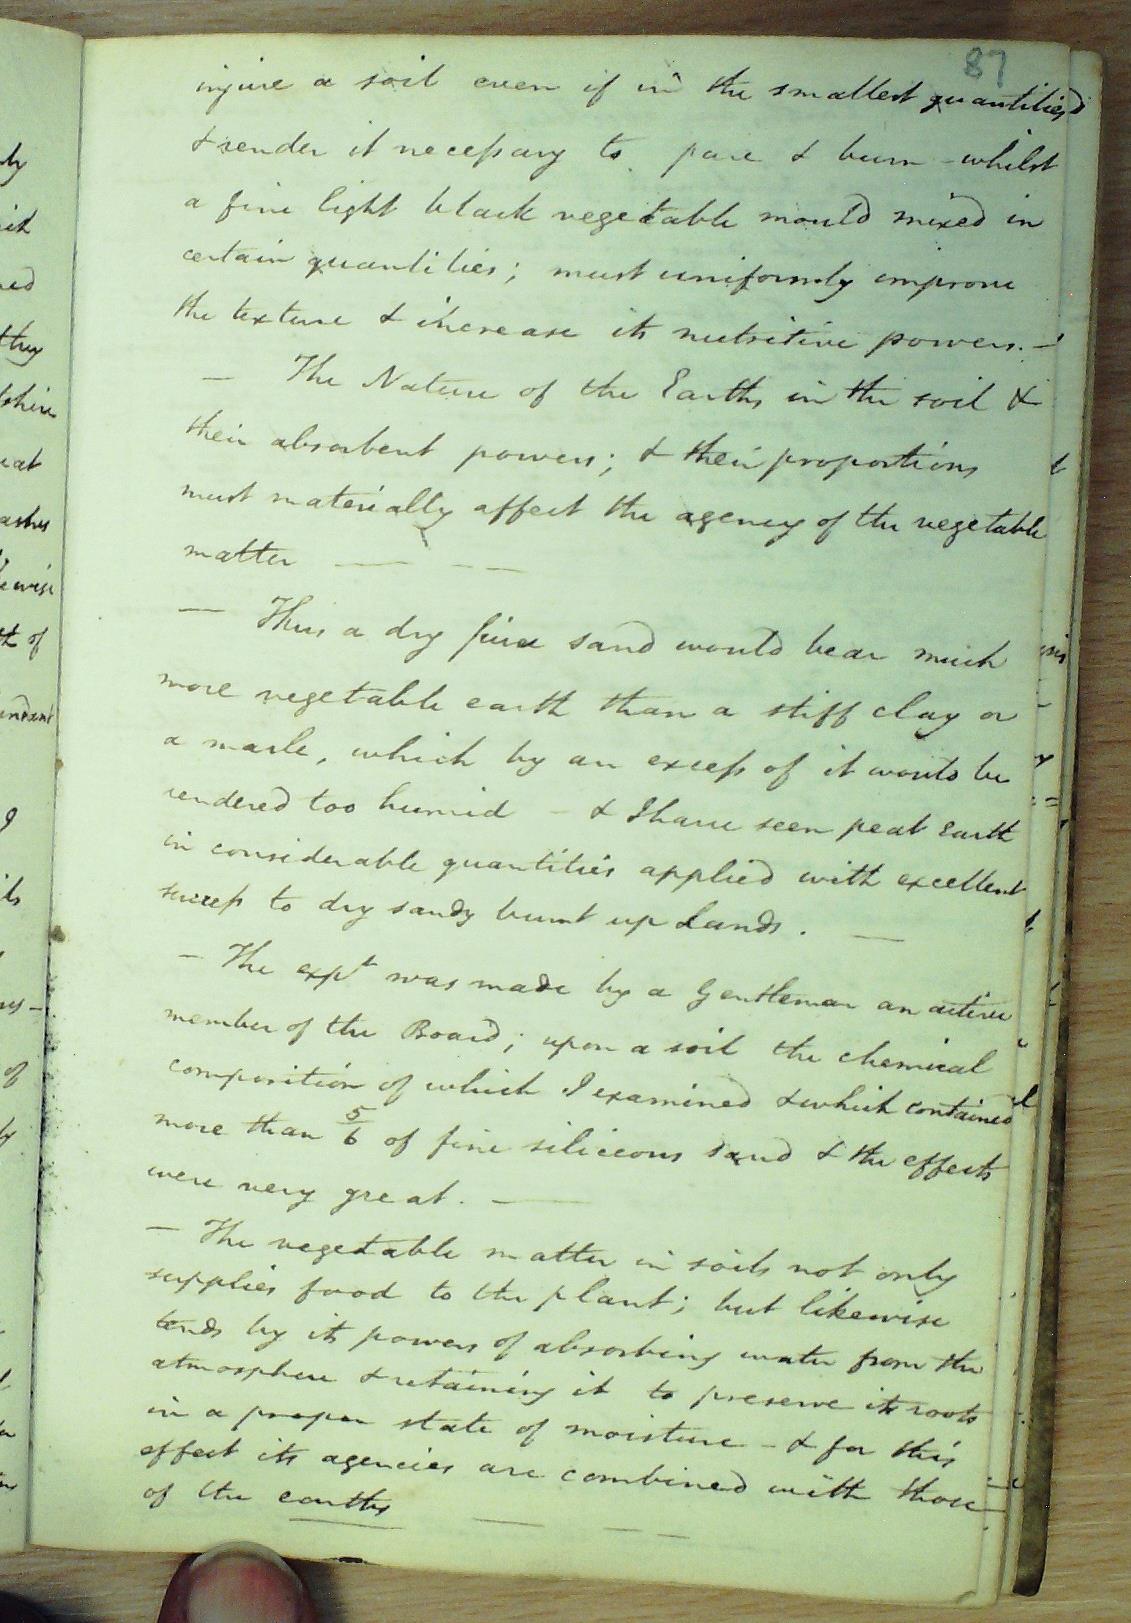 87
injure a soil even if in the smallest quantities
& render it necessary to pare & burn - whilst
a fine light black vegetable mould mixed in
certain quantities; must uniformly improve
the texture & increase its nutritive powers. -
- The Nature of the Earths in the soil &
their absorbent powers; & their proportions
must materially affect the agency of the vegetable
matter — — —
— Thus a dry fine sand would bear much
more vegetable earth than a stiff clay or
a marle, which by an excess of it would be
rendered too humid - & I have seen peat Earth
in considerable quantities applied with excellent
success to dry sandy burnt up Lands. —
- The expt was made by a Gentleman an active
member of the Board; upon a soil the chemical
composition of which I examined & which contained
more than 5/6 of fine siliceous sand & the effects
were very great. —
- The vegetable matter in soils not only
supplies food to the plant; but likewise
tends by its powers of absorbing water from the
atmosphere & retaining it to preserve its roots
in a proper state of moisture - & for this
effect its agencies are combined with those
of the earths — — —